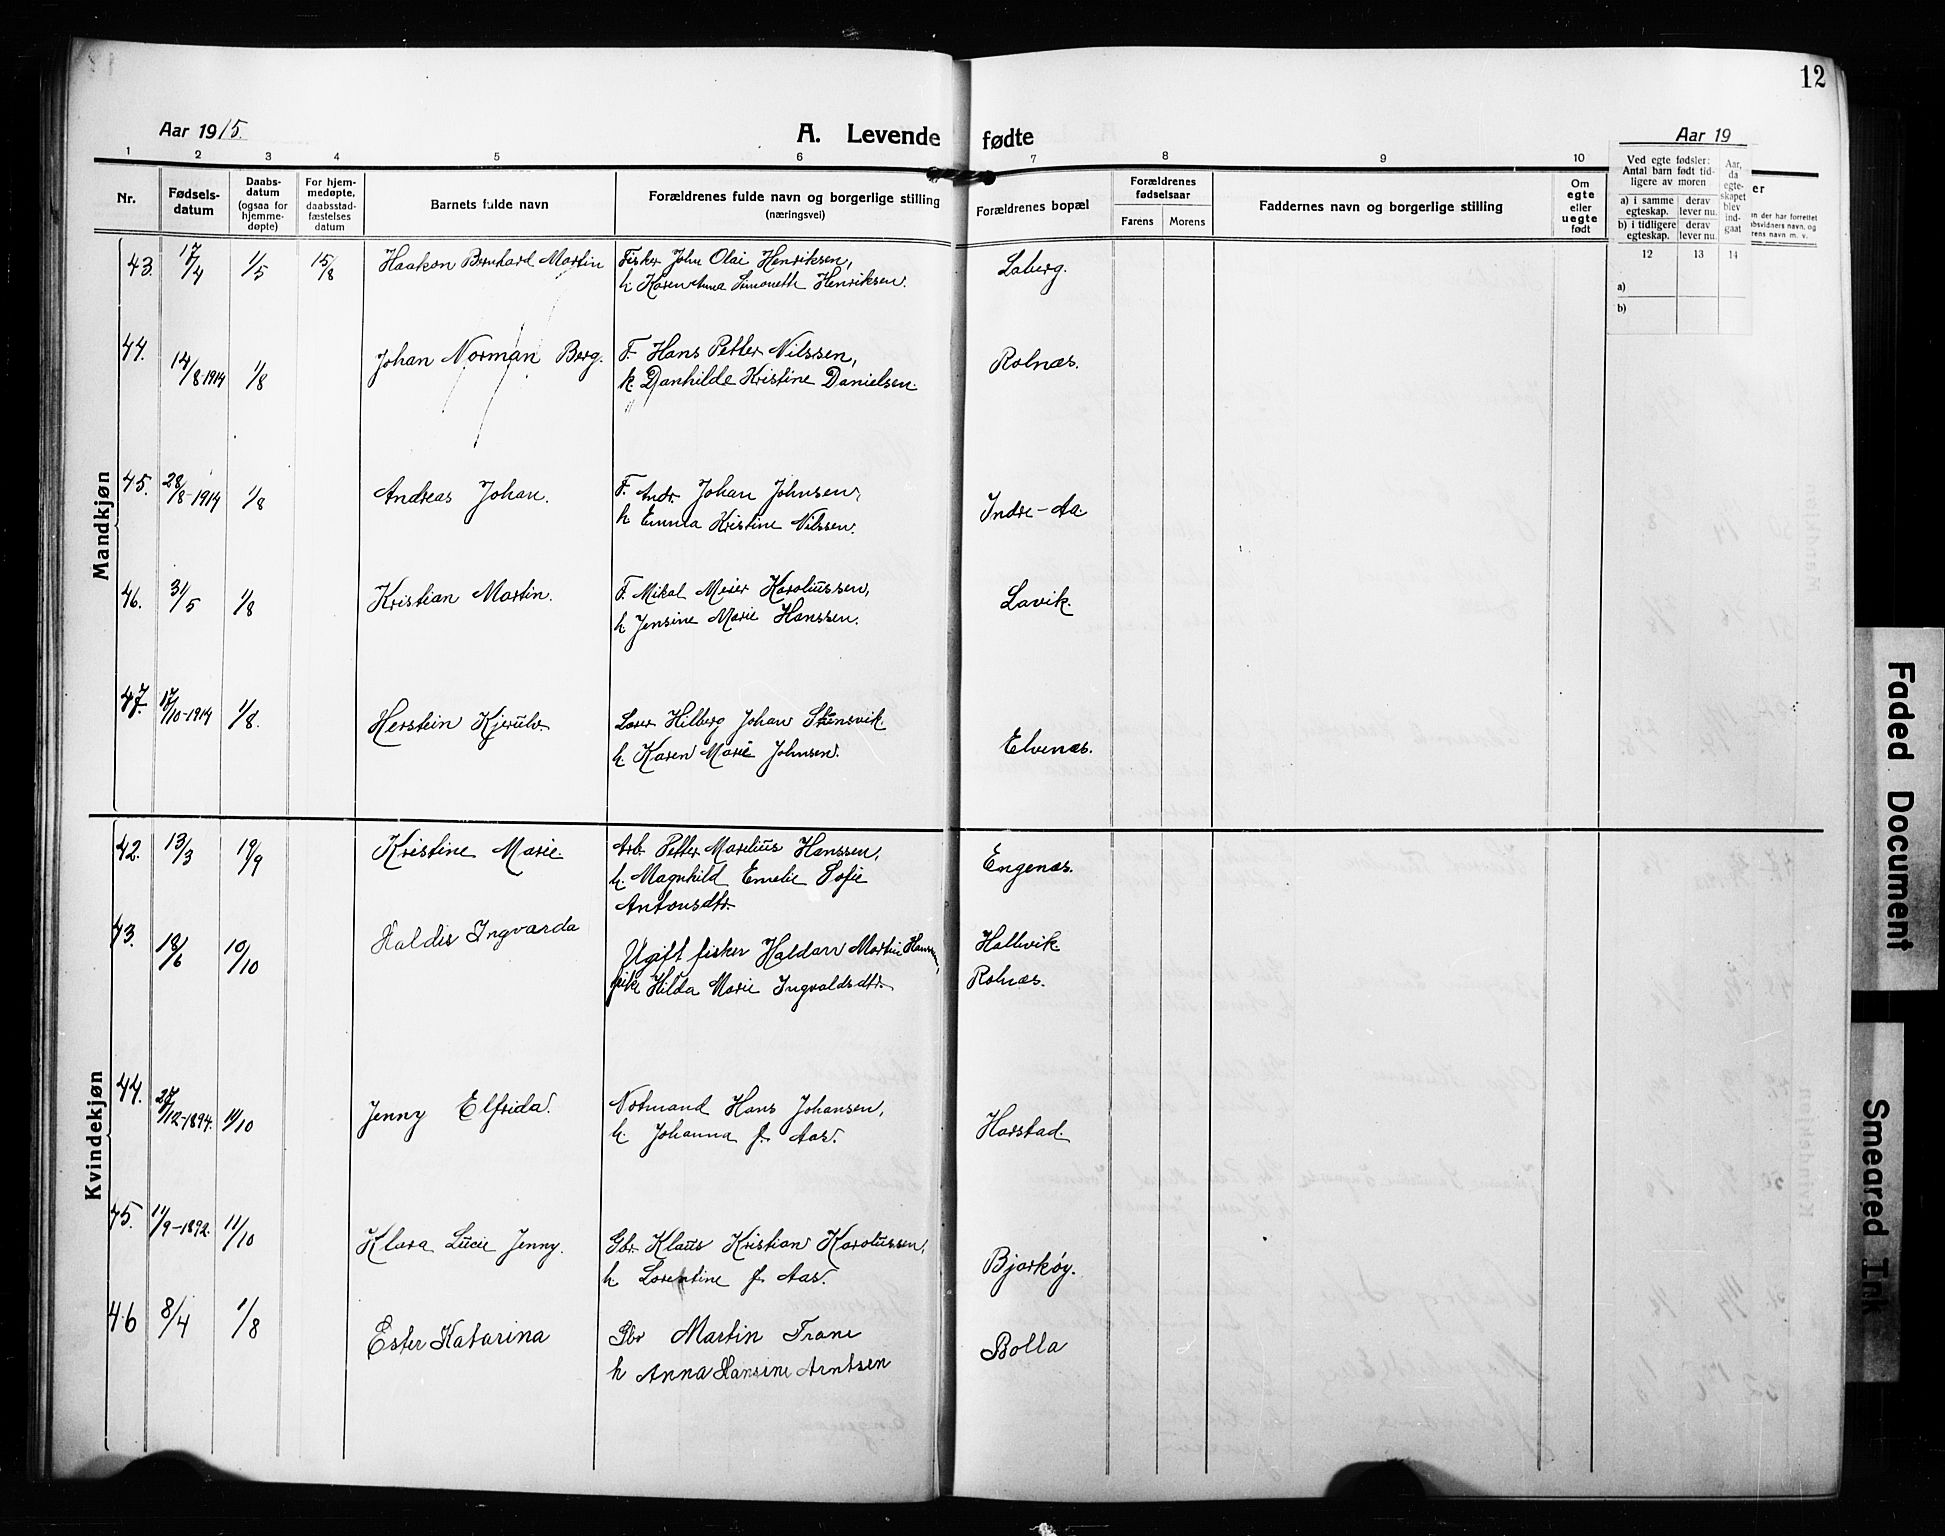 12
Aar 1915.
A. Levende fødte
Aar 19
1 2 3 4 5 6 7 8 9 10
Nr.
Fødsels-
datum
Daabs-
datum
(ogsaa for
hjemme-
døpte)
For hjem-
medøpte,
daabsstad-
fæstelses
datum
Barnets fulde navn
Forældrenes fulde navn og borgerlige stilling
(næringsvei)
Forældrenes bopæl
Forældrenes
fødselsaar
Farens Morens
Faddernes navn og borgerlige stilling
Om
egte
eller
uegte
født
Ved egte fødsler:
Antal barn født tid-
ligere av moren
a) i samme
egteskap.
derav
lever nu.
b) i tidligere
egteskap.
derav
lever nu.
Aar,
da
egte-
skapet
blev
ind-
gaat
12 13 14
a)
b)
Mandkjøn
43. 17/4 1/5 15/8 Haakon Bernhard Martin Fisker John Olai Henriksen, Laberg.
h Karen Anna Simonette Henriksen.
44. 14/8-1914 1/8 Johan Norman Berg. F. Hans Petter Nilssen, Rolnæs.
h. Danhilde Kristine Danielsen.
45. 28/8-1914 1/8 Andreas Johan. F. Andr. Johan Johnsen, Indre-Aa
h Emma Kristine Nilssen.
46. 31/5 1/8 Kristian Martin. F. Mikal Meier Karoliussen, Lavik.
h Jensine Marie Hanssen.
47. 17/10-1914 1/8. Herstein Kjerulv. Lærer Hilberg Johan Stensvik. Elvenæs.
h. Karen Marie Johnsen.
Kvindekjøn
42. 13/3 19/9 Kristine Marie. Arb. Petter Marelius Hanssen, Engenæs.
h. Magnhild Emelie Sofie
Antonsdtr.
43. 18/6 10/10 Haldis Ingvarda Ugift fisker Haldan Martin Hallvik
pike Hilda Marie Ingvaldsdtr. Rolnæs.
44. 27/12-1894. 10/10 Jenny Elfrida. Notmand Hans Johansen, Harstad.
h. Johanna f. Aas.
45. 11/9-1892. 11/10 Klara Lucie Jenny. Gbr. Klaus Kristian Karolussen, Bjarkøy.
h Lorentine f. Aas.
46 8/4 1/8 Ester Katarina Gbr Martin Trane Bolla
h Anna Hansine Arntsen
Faded Document
Smeared Ink